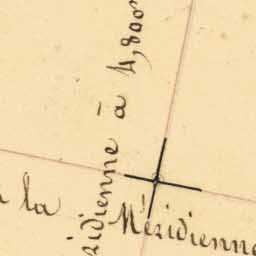 ridienne à 4,800
la
Méridienne